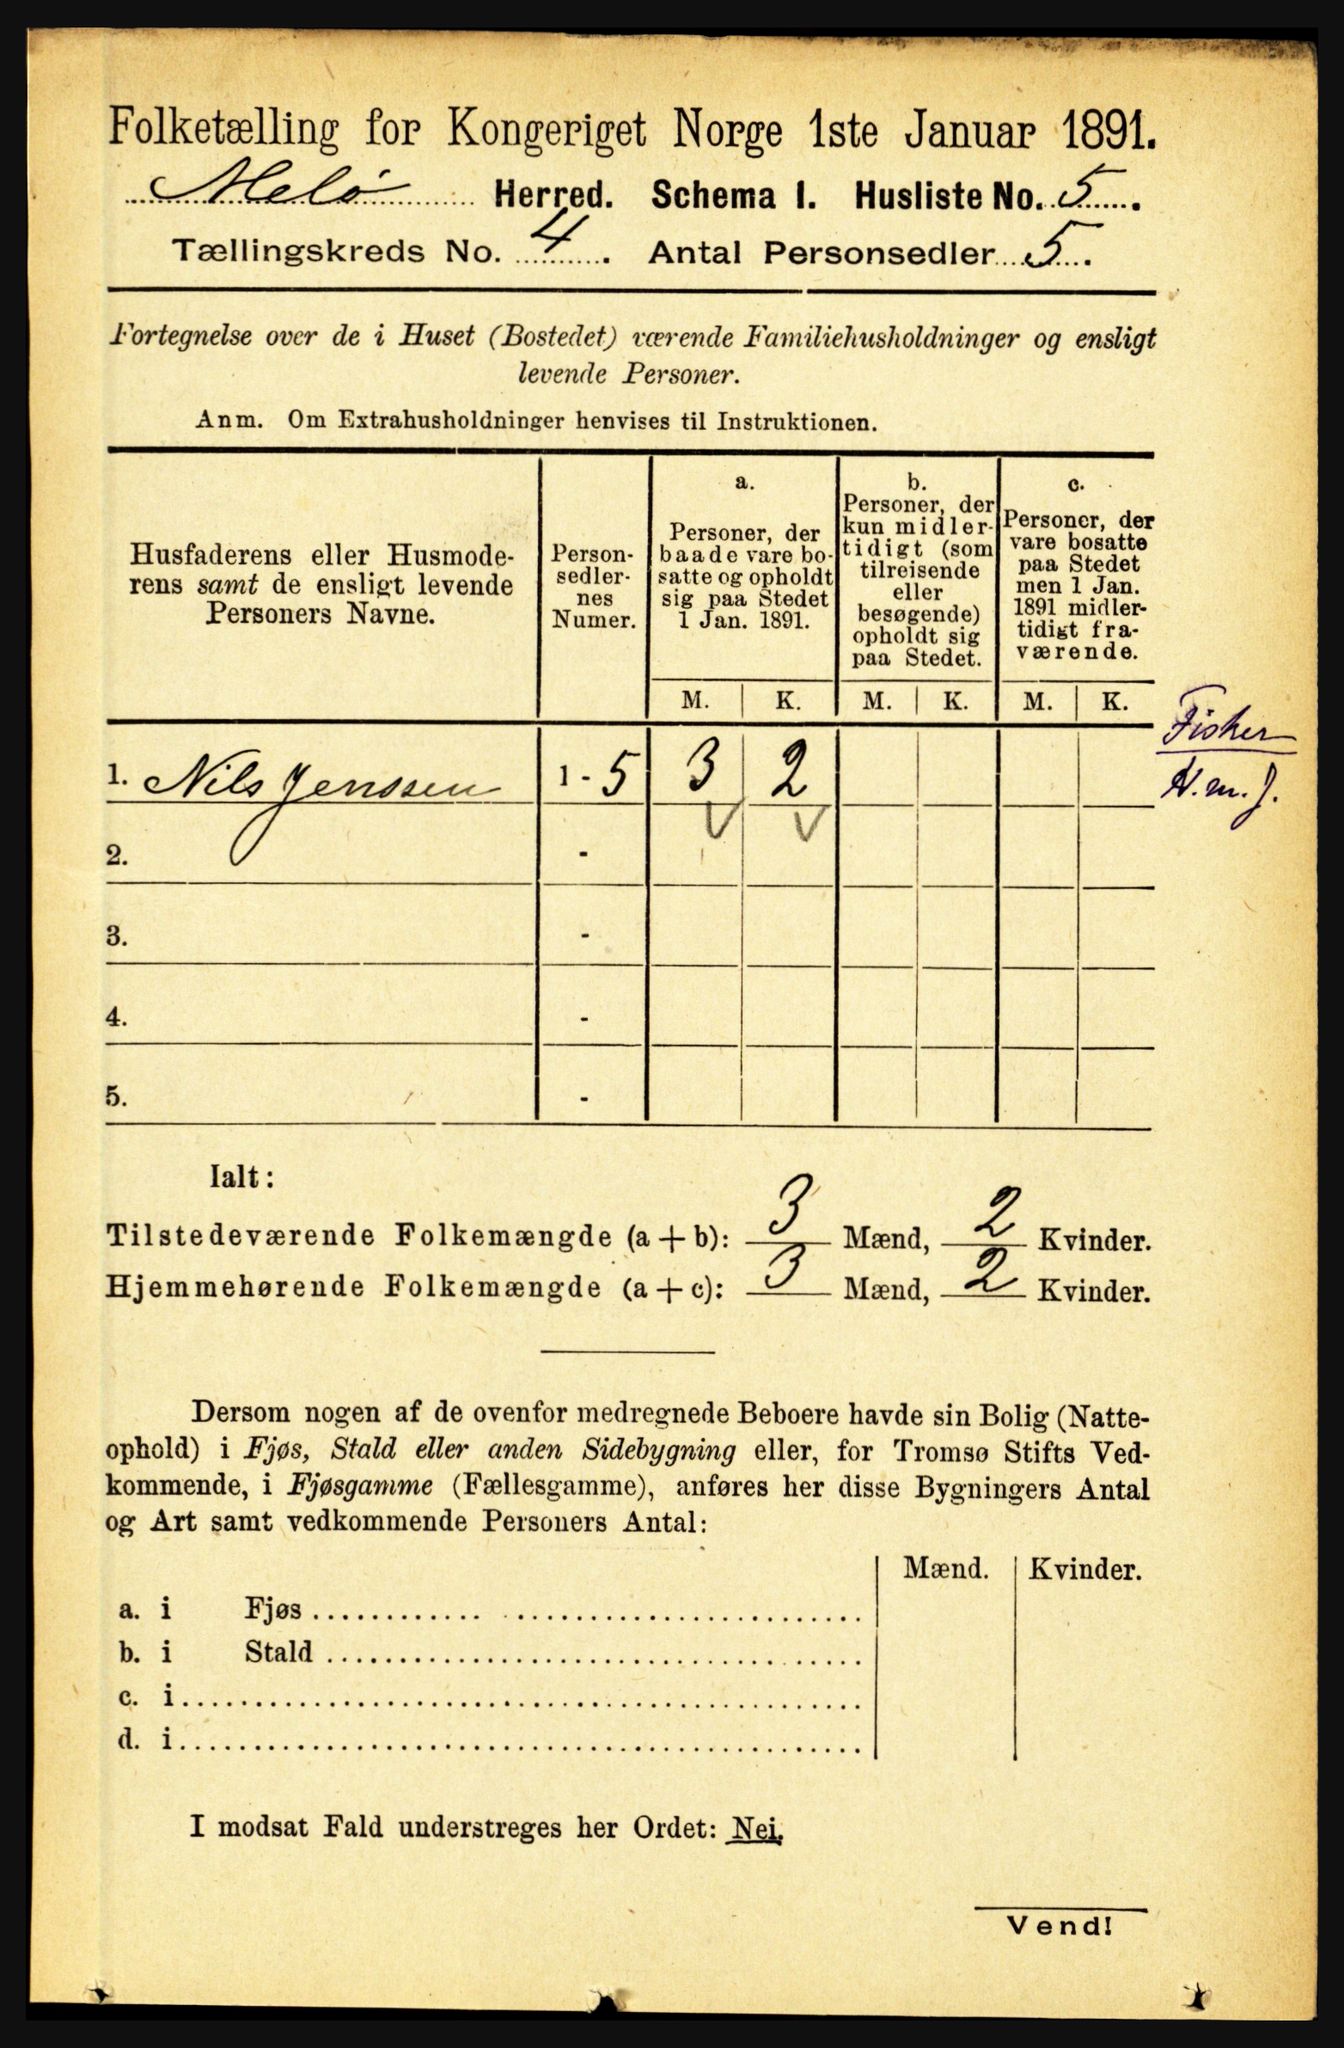 Folketælling for Kongeriget Norge 1ste Januar 1891.
Melö Herred. Schema I. Husliste No. 5.
Tællingskreds No. 4. Antal Personsedler 5.
Fortegnelse over de i Huset (Bostedet) værende Familiehusholdninger og ensligt
levende Personer.
Anm. Om Extrahusholdninger henvises til Instruktionen.
Husfaderens eller Husmode-
rens samt de ensligt levende
Personers Navne.
Person-
sedler-
nes
Numer.
a.
Personer, der
baade vare bo-
satte og opholdt
sig paa Stedet
1 Jan. 1891.
b.
Personer, der
kun midler-
tidigt (som
tilreisende
eller
besøgende)
opholdt sig
paa Stedet.
c.
Personer, der
vare bosatte
paa Stedet
men 1 Jan.
1891 midler-
tidigt fra-
værende.
M. K. M. K. M. K.
Fisker
1. Nils Jenssen 1 - 5 3 2
H.m.J.
2. -
3. -
4. -
5. -
Ialt:
Tilstedeværende Folkemængde (a + b): 3 Mænd, 2 Kvinder.
Hjemmehørende Folkemængde (a + c): 3 Mænd, 2 Kvinder.
Dersom nogen af de ovenfor medregnede Beboere havde sin Bolig (Natte-
ophold) i Fjøs, Stald eller anden Sidebygning eller, for Tromsø Stifts Ved-
kommende, i Fjøsgamme (Fællesgamme), anføres her disse Bygningers Antal
og Art samt vedkommende Personers Antal:
Mænd. Kvinder.
a. i Fjøs
b. i Stald
c. i
d. i
I modsat Fald understreges her Ordet: Nei.
Vend!